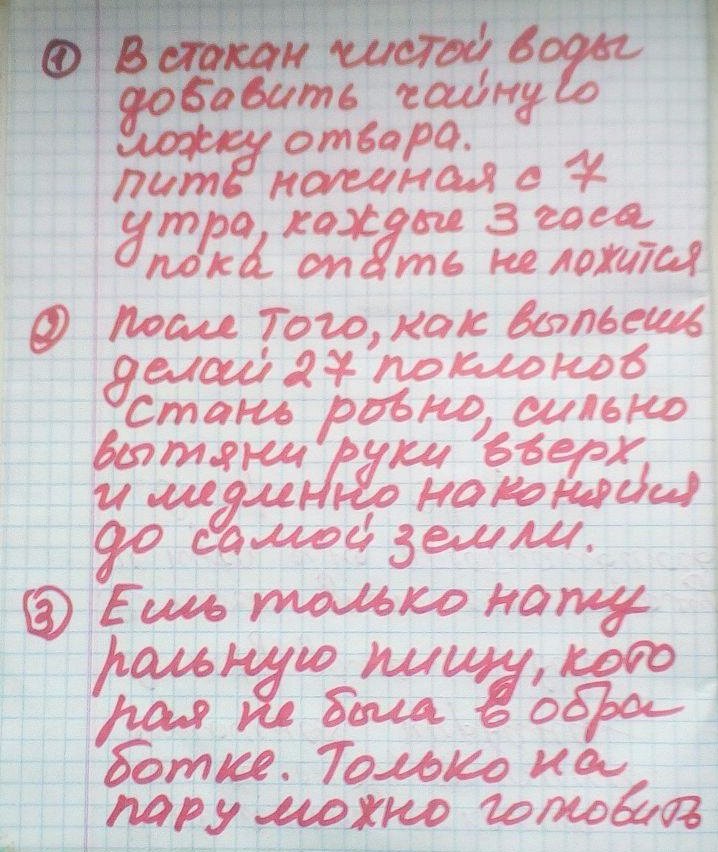 ① В стакан чистой воды
добавить чайную
ложку отвара.
пить начиная с 7
утра, каждые 3 часа
пока спать не ложится
② После того, как выпьешь
делай 27 поклонов
Стань ровно, сильно
вытяни руки вверх
и медленно наконяйся
до самой земли.
③ Ешь только нату
ральную пищу, кото
рая не была в обра
ботке. Только на
пару можно готовить